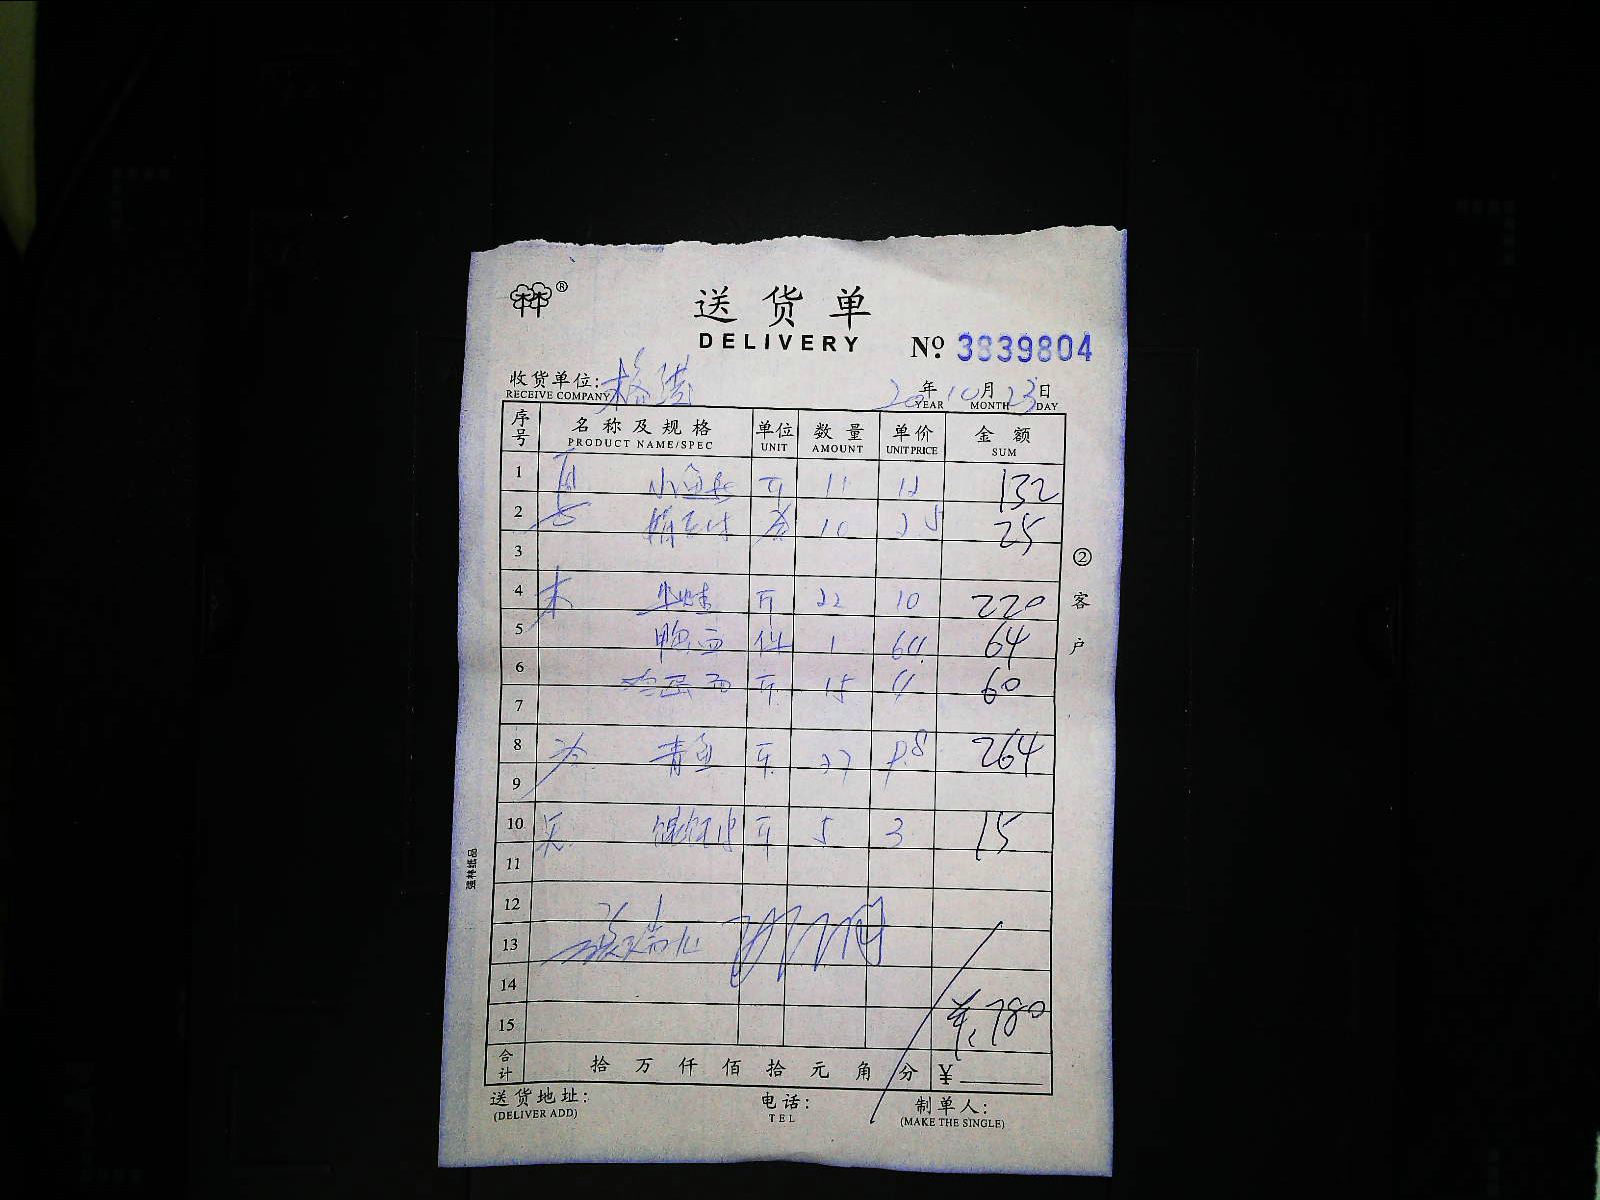 ®
送货单
DELIVERY № 3839804
收货单位: 20 年 10 月 23 日
RECEIVE COMPANY YEAR MONTH DAY
序号 名称及规格 单位 数量 单价 金额
PRODUCT NAME/SPEC UNIT AMOUNT UNIT PRICE SUM
1 斤 11 12 132
2 10 2.5 25
3
4 牛蛙 斤 22 10 220
5 鸭血 件 1 64 64
6 斤 15 4 60
7
8 青鱼 斤 27 9.8 264
9
10 斤 5 3 15
11
12
13
14
15 ¥.780
合计 拾 万 仟 佰 拾 元 角 分 ¥
送货地址: 电话: 制单人:
(DELIVER ADD) TEL (MAKE THE SINGLE)
②客户
强林纸品